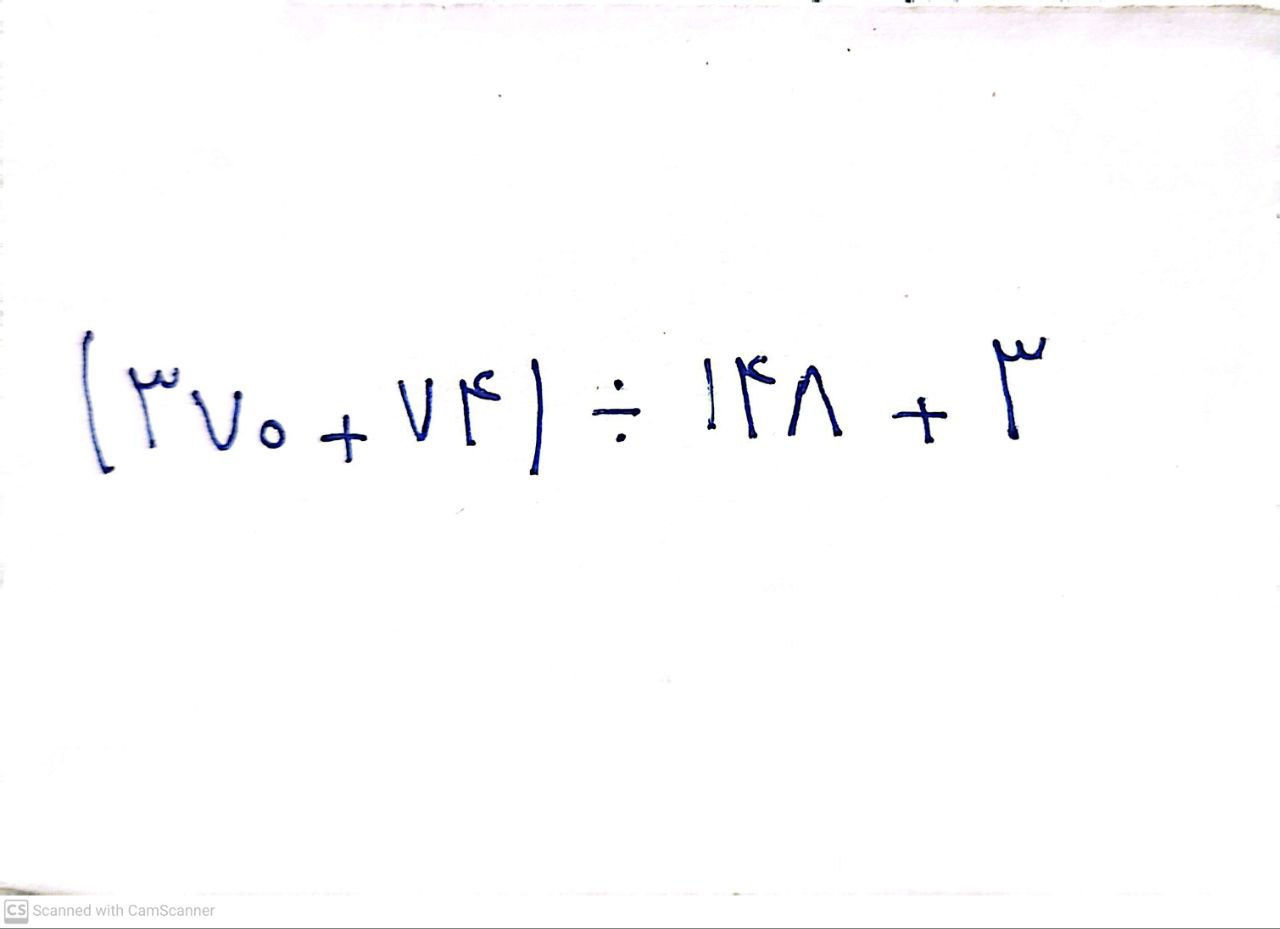 (۳۷۰ + ۷۴) ÷ ۱۴۸ + ۳
CS Scanned with CamScanner